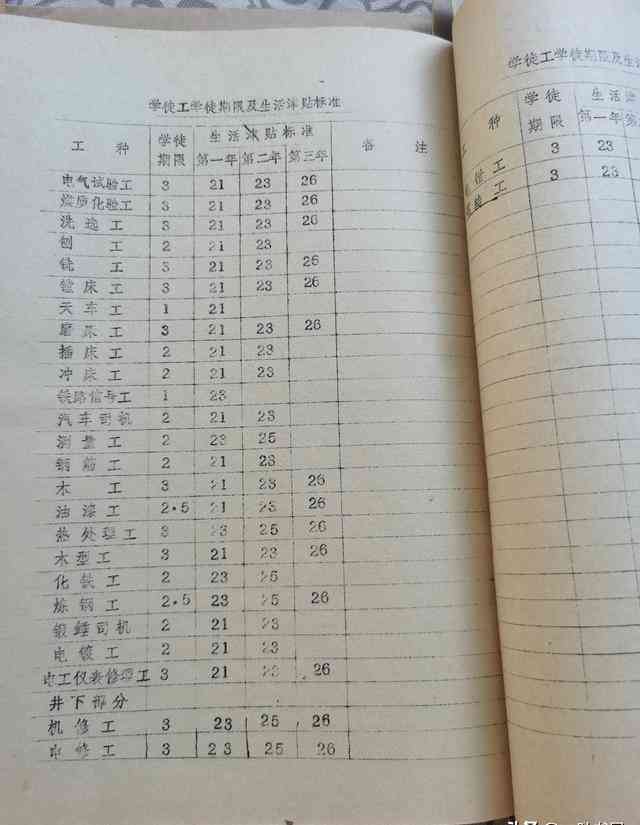 学徒工学徒期限及生活津贴标准
工 种 学徒期限 生活津贴标准 备 注
第一年 第二年 第三年
电气试验工 3 21 23 26
煤质化验工 3 21 23 26
洗选工 3 21 23 26
刨 工 2 21 23
铣 工 3 21 23 26
镗床工 3 21 23 26
天车工 1 21
磨床工 3 21 23 26
插床工 2 21 23
冲床工 2 21 23
铁路信号工 1 23
汽车司机 2 21 23
测量工 2 23 25
钢筋工 2 21 23
木 工 3 21 23 26
油漆工 2.5 21 23 26
热处理工 3 23 25 26
木型工 3 21 23 26
化铁工 2 23 25
炼钢工 2.5 23 25 26
锻锤司机 2 21 23
电镀工 2 21 23
电工仪表修理工 3 21 23 26
井下部分
机修工 3 23 25 26
电修工 3 23 25 26
学徒工学徒期限及生活
种 学徒期限 生活津
第一年 第
工 3 23
工 3 23